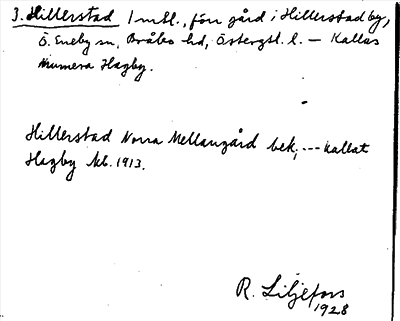 3. Hillerstad 1 mtl., förr gård i Hillerstad by,
Ö. Eneby sn, Bråbo hd, Östergtl. l. – Kallas
numera Hagby.
Hillerstad Norra Mellangård bek, --- kallat
Hagby Kb. 1913.
R. Liljefors
1928